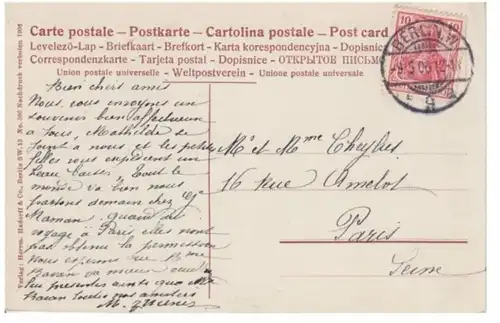 Carte postale – Postkarte – Cartolina postale – Post card
Levelező-Lap – Briefkaart – Brefkort – Karta korespondencyjna – Dopisnice
Correspondenzkarte – Tarjeta postal – Dopisnice – ОТКРЫТОЕ ПИСЬМО
Union postale universelle – Weltpostverein – Unione postale universale
Verlag: Herm. & Co., Berlin SW.13 No. 386 Nachdruck verboten 1906
BERLIN
10
Bien chers amis
Nous vous envoyons un
souvenir bien affectueux
à tous, Mathilde se
joint à nous et les petites
filles vous expédient un
beau baiser. Tout le
monde va bien nous
partons demain chez
Maman, quand au
voyage à Paris elles n'ont
pas obtenu la permission
Nous espérons que Mme
va mieux
les présentes ainsi que Mr
toutes nos amitiés
M.
Mr et Mme Cheylus
16 Rue Amelot
Paris
Seine